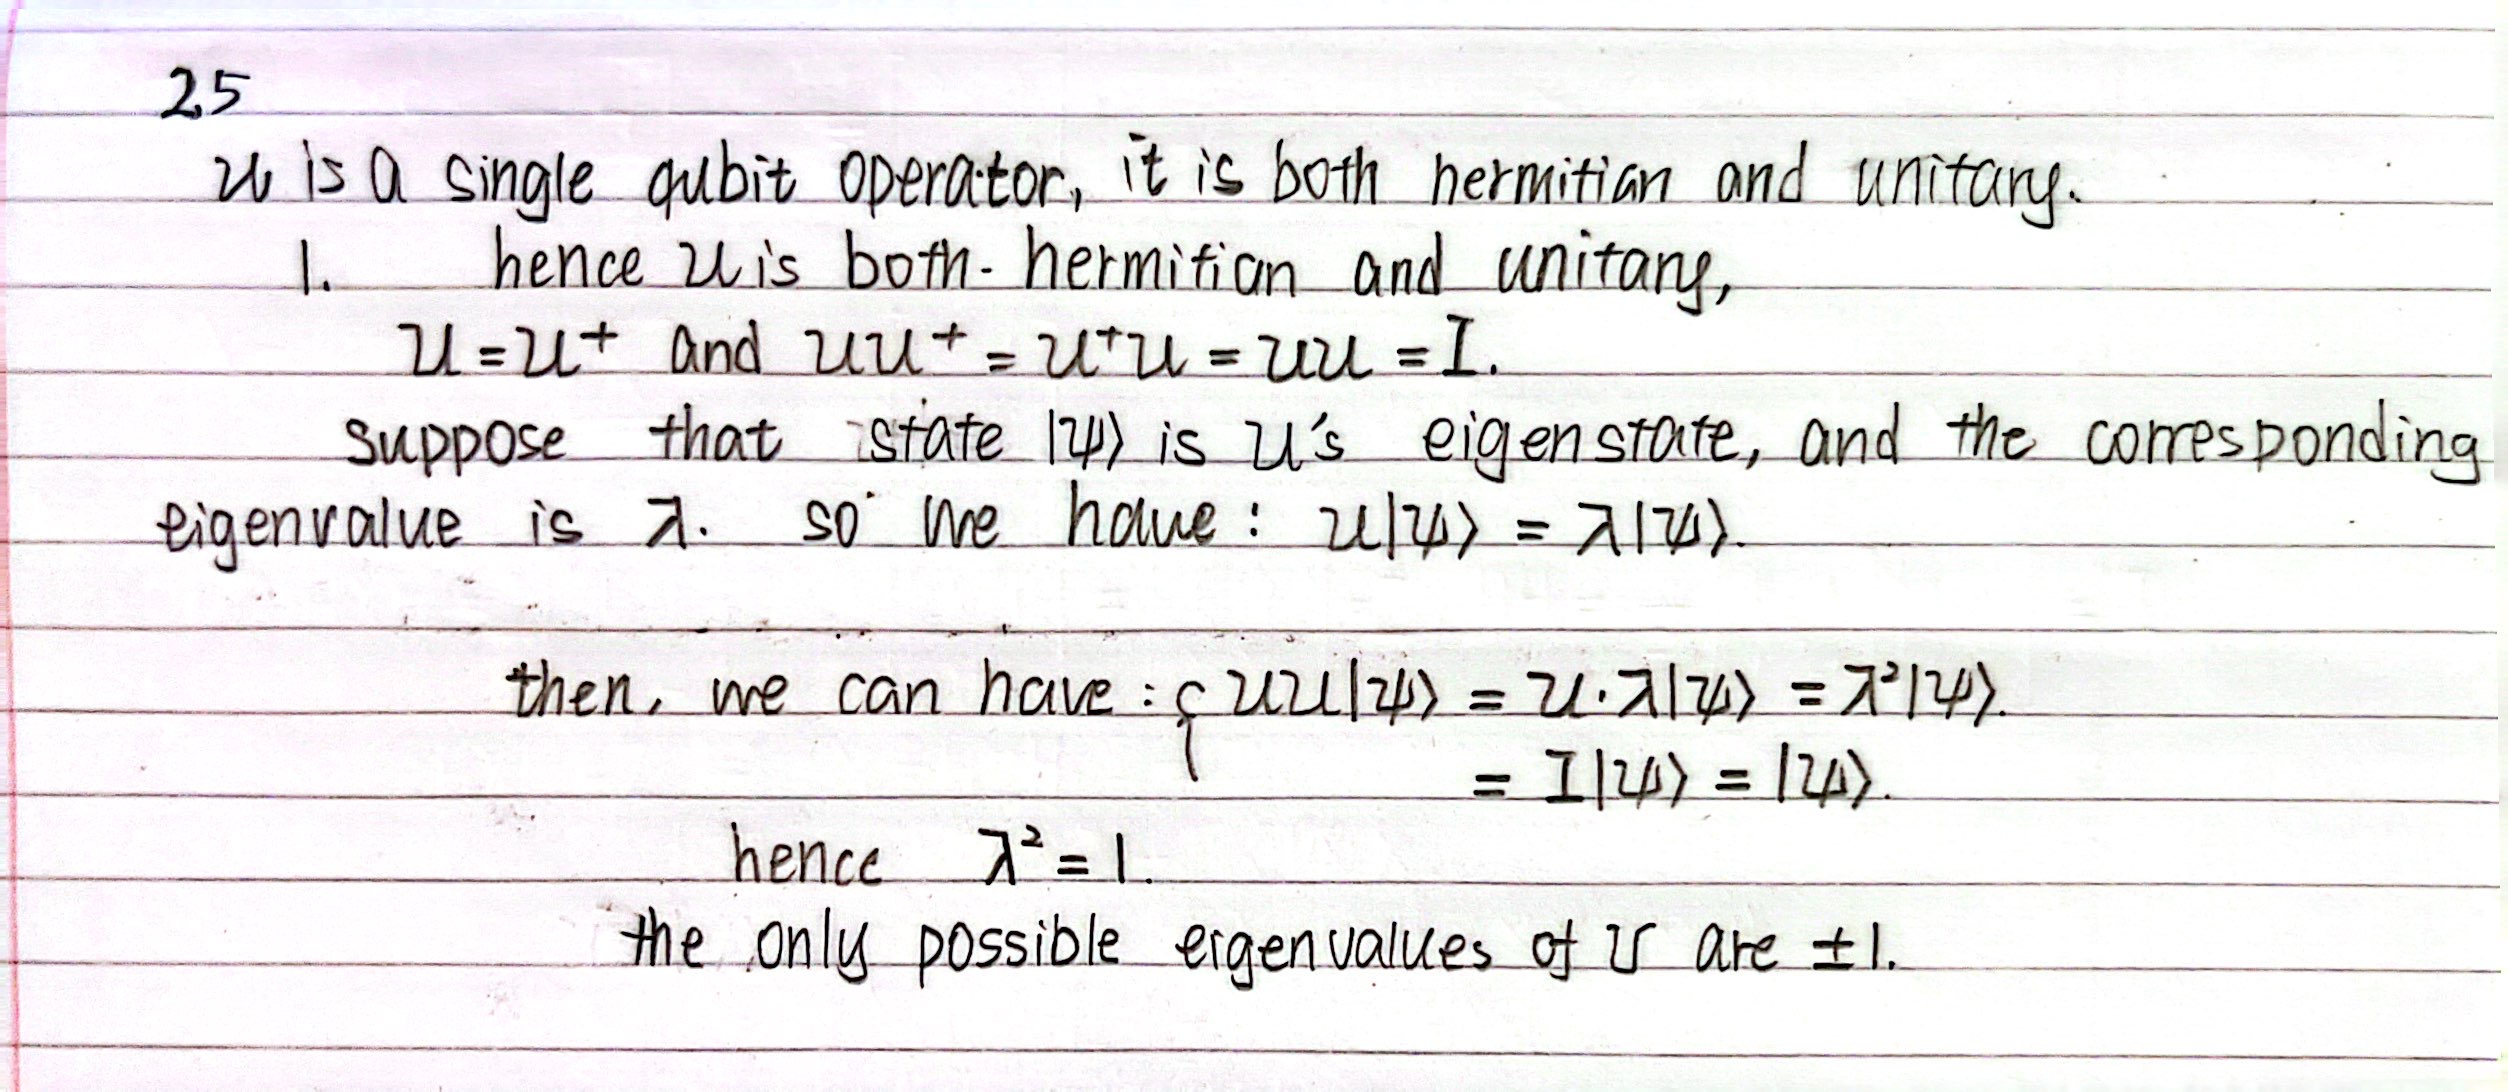 2.5
U is a single qubit operator, it is both hermitian and unitary.
1. hence U is both hermitian and unitary,
U = U⁺ and UU⁺ = U⁺U = UU = I.
suppose that state |ψ⟩ is U's eigenstate, and the corresponding
eigenvalue is λ. so we have : U|ψ⟩ = λ|ψ⟩.
then, we can have : { UU|ψ⟩ = U·λ|ψ⟩ = λ²|ψ⟩.
= I|ψ⟩ = |ψ⟩.
hence λ² = 1.
the only possible eigenvalues of U are ±1.